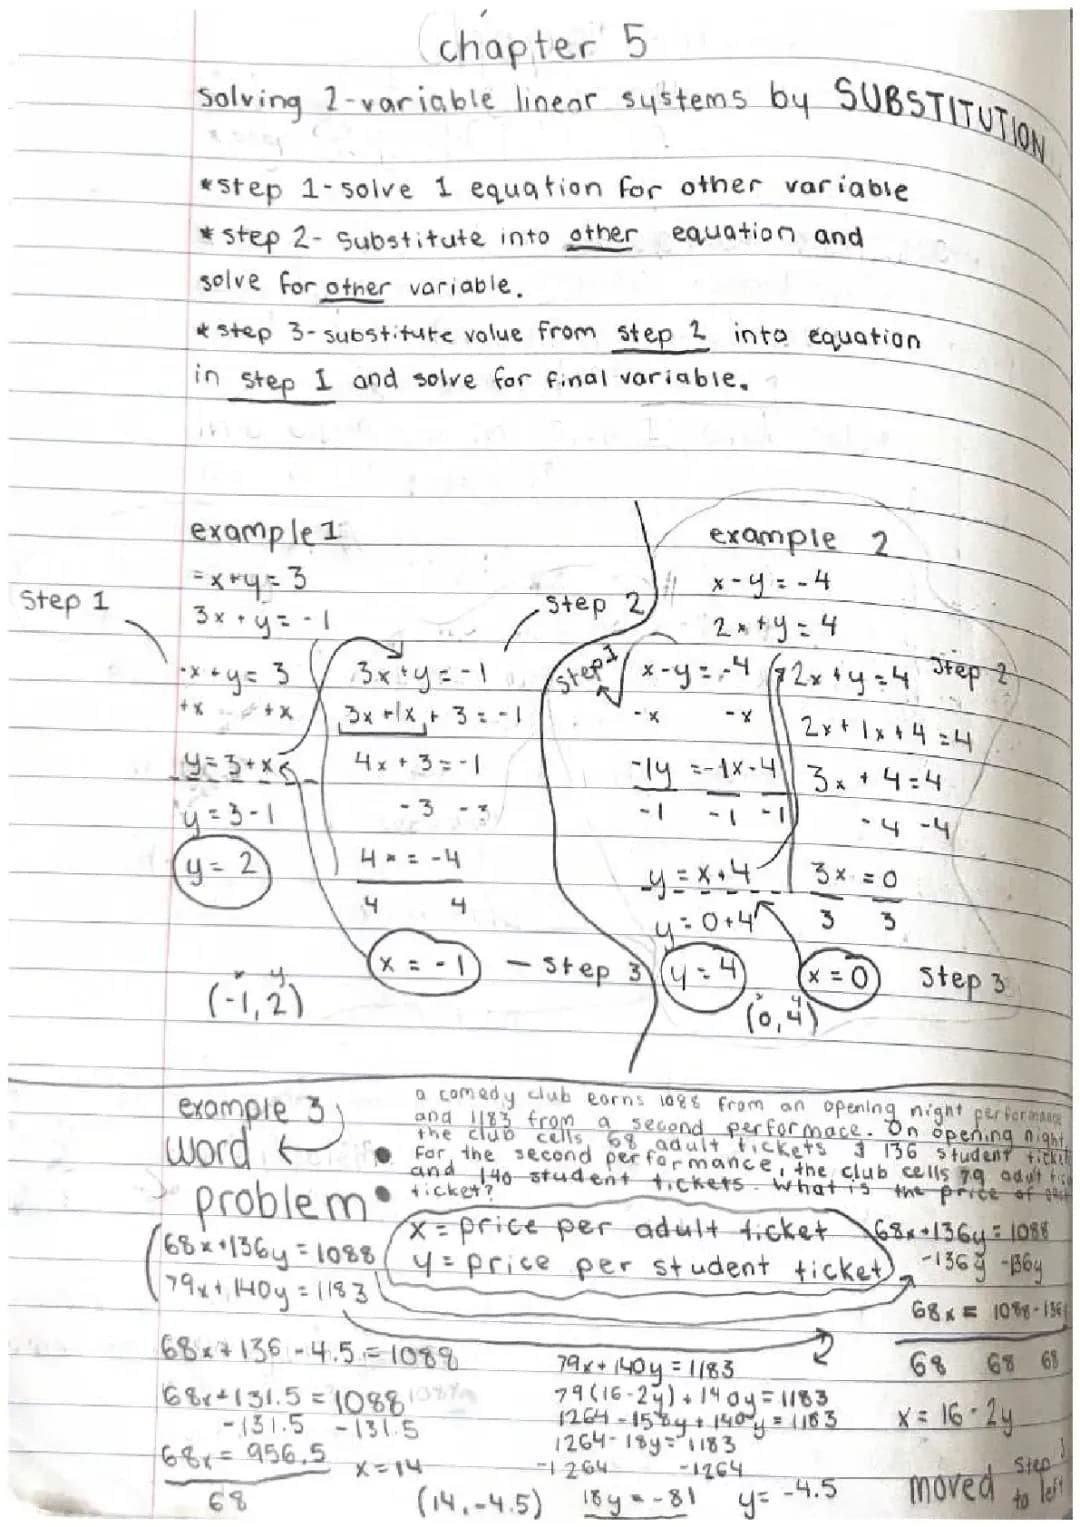 chapter 5
Solving 2-variable linear systems by SUBSTITUTION
*step 1-solve 1 equation for other variable
*step 2- Substitute into other equation and
solve for other variable.
*step 3-substitute value from step 2 into equation
in step 1 and solve for final variable.
example 1
-x+y=3
3x+y=-1
Step 1
-x+y=3
+x +x
y=3+x
y=3-1
y=2
(-1,2)
x y
step 2
3x+y=-1
3x+1x+3=-1
4x+3=-1
-3 -3
4x=-4
4 4
x=-1
- Step 3
example 2
x-y=-4
2x+y=4
step 1
x-y=-4
-x -x
-1y=-1x-4
-1 -1 -1
y=x+4
y=0+4
y=4
2x+y=4 Step 2
2x+1x+4=4
3x+4=4
-4 -4
3x=0
3 3
x=0
Step 3
x y
(0,4)
example 3
word
problem
a comedy club earns 1088 from an opening night performance
and 1183 from a second performace. On opening night,
the club cells 68 adult tickets & 136 student
For the second performance, the club cells 79 adult
and 140 student tickets. What is the price of
ticket?
x=price per adult ticket
y=price per student ticket
68x+136y=1088
79x+140y=1183
68x+136y=1088
-136y -136y
68x=1088-136
68 68 68
x=16-2y
moved step 3
to left
79x+140y=1183
79(16-2y)+140y=1183
1264-158y+140y=1183
1264-18y=1183
-1264 -1264
18y=-81
y=-4.5
68x+136-4.5=1088
68x+131.5=1088
-131.5 -131.5
68x=956.5
68
x=14
(14,-4.5)